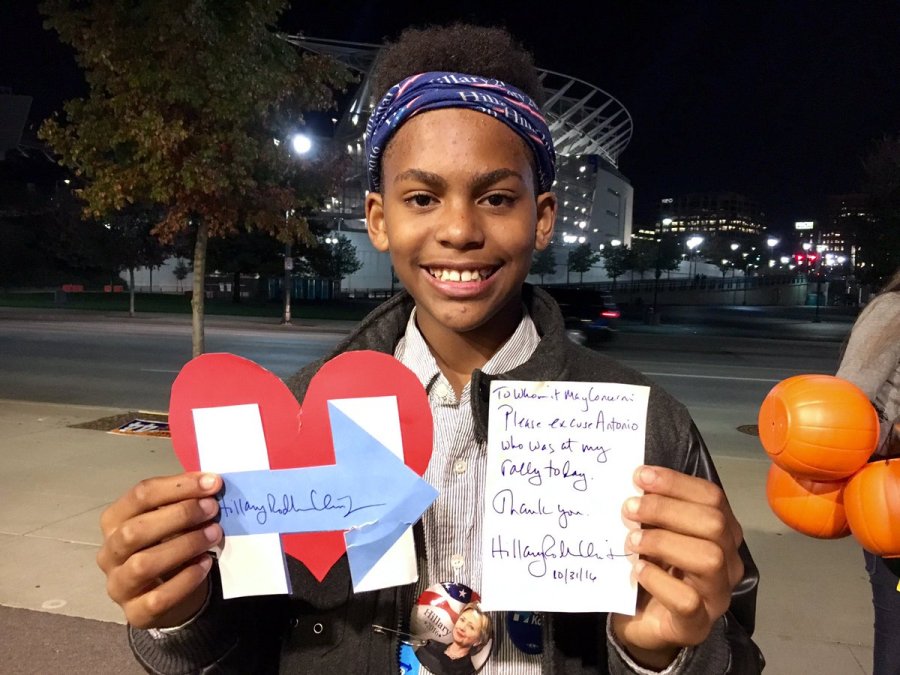 Hillary
Hillary
To Whom it May Concern:
Please excuse Antonio
who was at my
rally today.
Thank you.
Hillary Rodham Clinton
10/31/16
Hillary Rodham Clinton
Hillary
2016